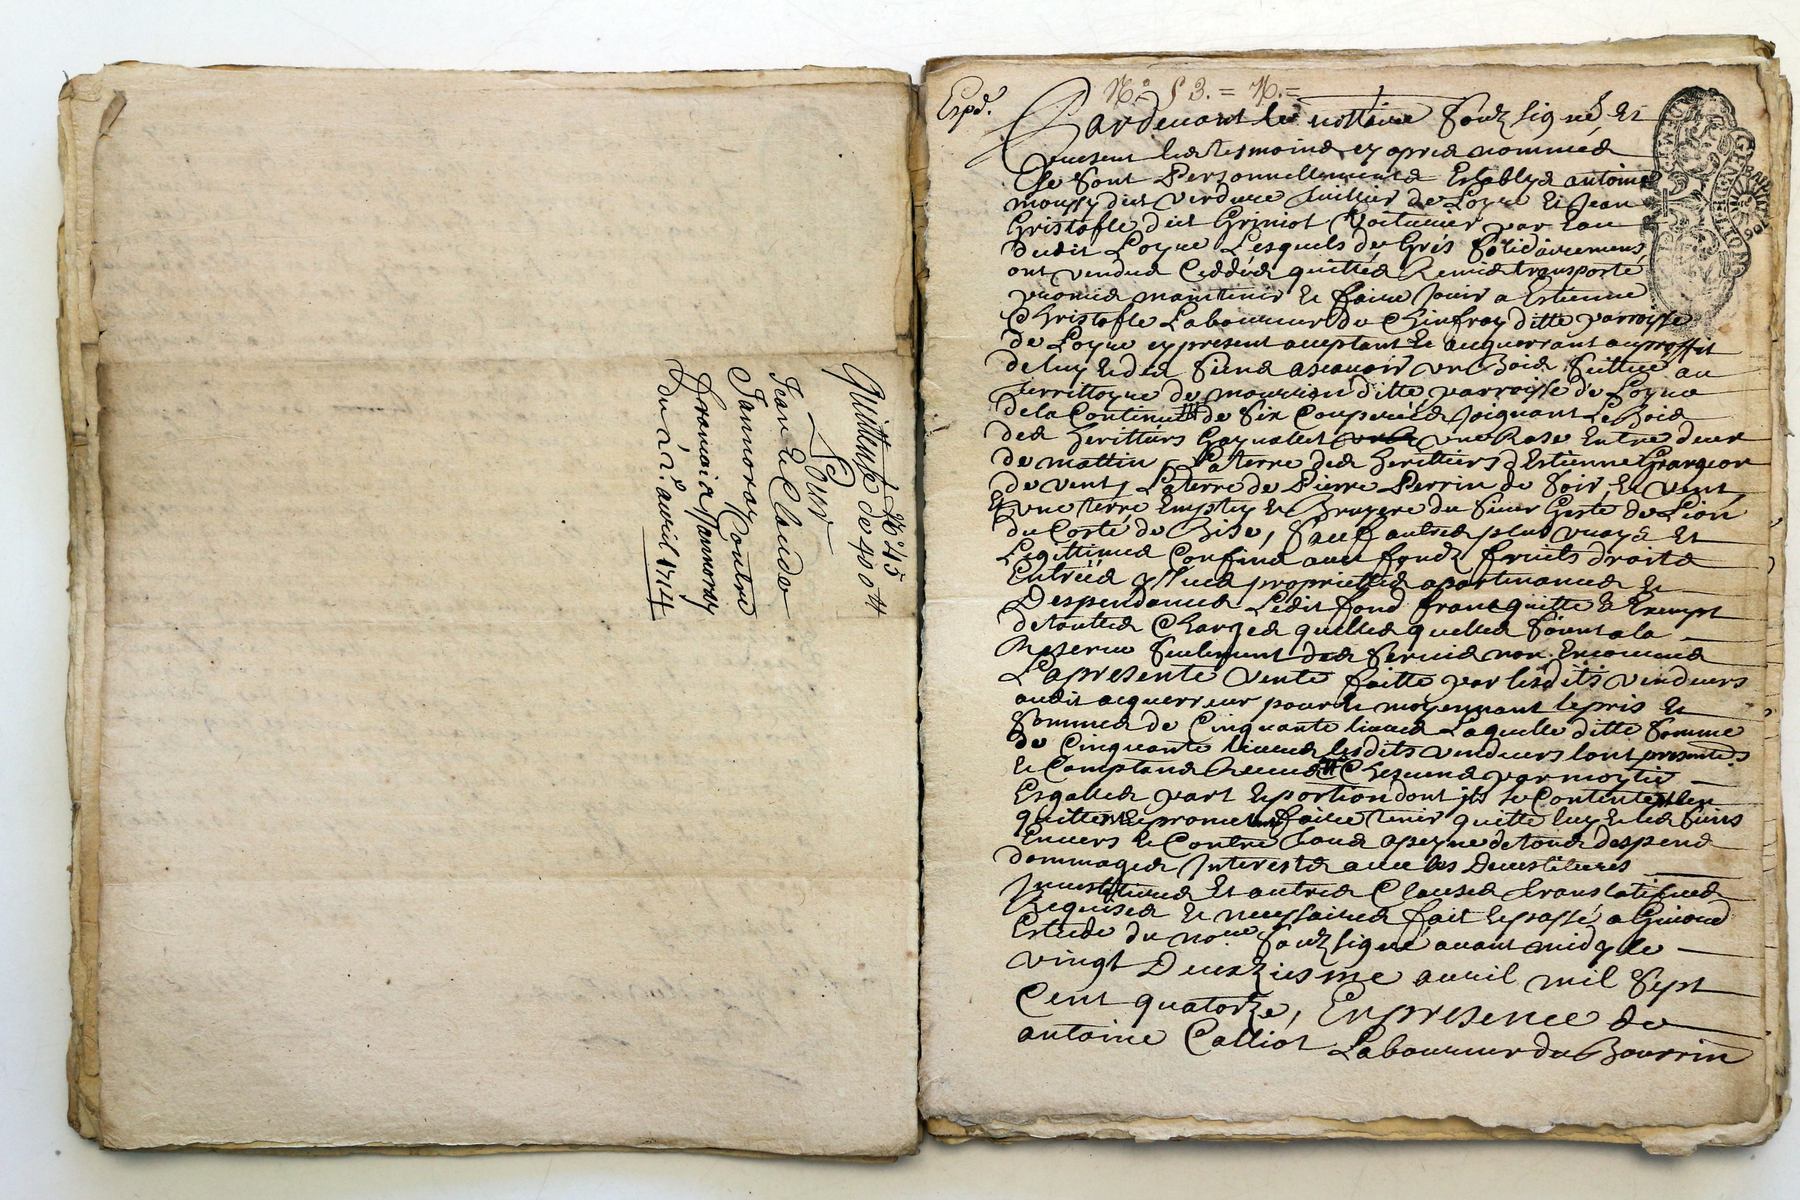 N° 45
Quittance de 400 tt
Pour
Jean et Claude
Jannoray Contre
francois Jannoray
Du 22e avril 1714
Expd.
N.° 53. = N. =
Pardeuant le nottaire soubsigné Et
presents les tesmoins cy apres nommés
se sont Personnellements Establys antoine
moussy dict verdure thuillier de Loyse Et Jean
Cristofle dict Griniot voiturier par Eau
dudit Loyse Lesquels de Grés solidairement
ont vendus Ceddés quittés Remis transporté
promis maintenir Et faire Jouir a Estienne
Christofle Laboureur du ditte parroisse
de Loyse cy present acceptant Et acquerrant au proffit
de luy Et des siens ascauoir un Bois scittue au
territtoyre de ditte parroisse de Loyse
de la Continue de six Couperées Joignant Le Bois
des heritiers une Rase Entre deux
de mattin, La terre des heritiers d'Estienne Grangeon
de vent, La terre de Pierre Perrin de soir, Et vent
Et une terre Et Bruyere du sieur de
du Costé de Bise, sauf autres plus vrays Et
Legittimes Confins auec fonds fruits droits
Entrées yssues proprietties apartinances Et
Despendances Ledit fond franc quitte Et Exempt
de touttes Charges quelles quelles soient a la
Reserue seulement des seruis non Encourus
La presente vente faitte par lesdits vendeurs
audit acquerreur pour Et moyennant le pris Et
somme de Cinquante liures Laquelle ditte somme
de Cinquante liures lesdits vendeurs lont presents
Et Comptans Receue Chescuns par moytié
Esgalle part Et portion dont ils se Contentent
quittent Et promettent faire tenir quitte luy Et les siens
Enuers Et Contre tous a peyne de tous despens
dommages Interests auec les Deuestitures
Inuestitures Et autres Clauses translatifues
Requises Et necessaires fait Et passé a
Estude du nore soubsigné auant midy le
vingt Deuxziesme auril mil sept
Cent quatorze, En presence de
antoine Calliot Laboureur du